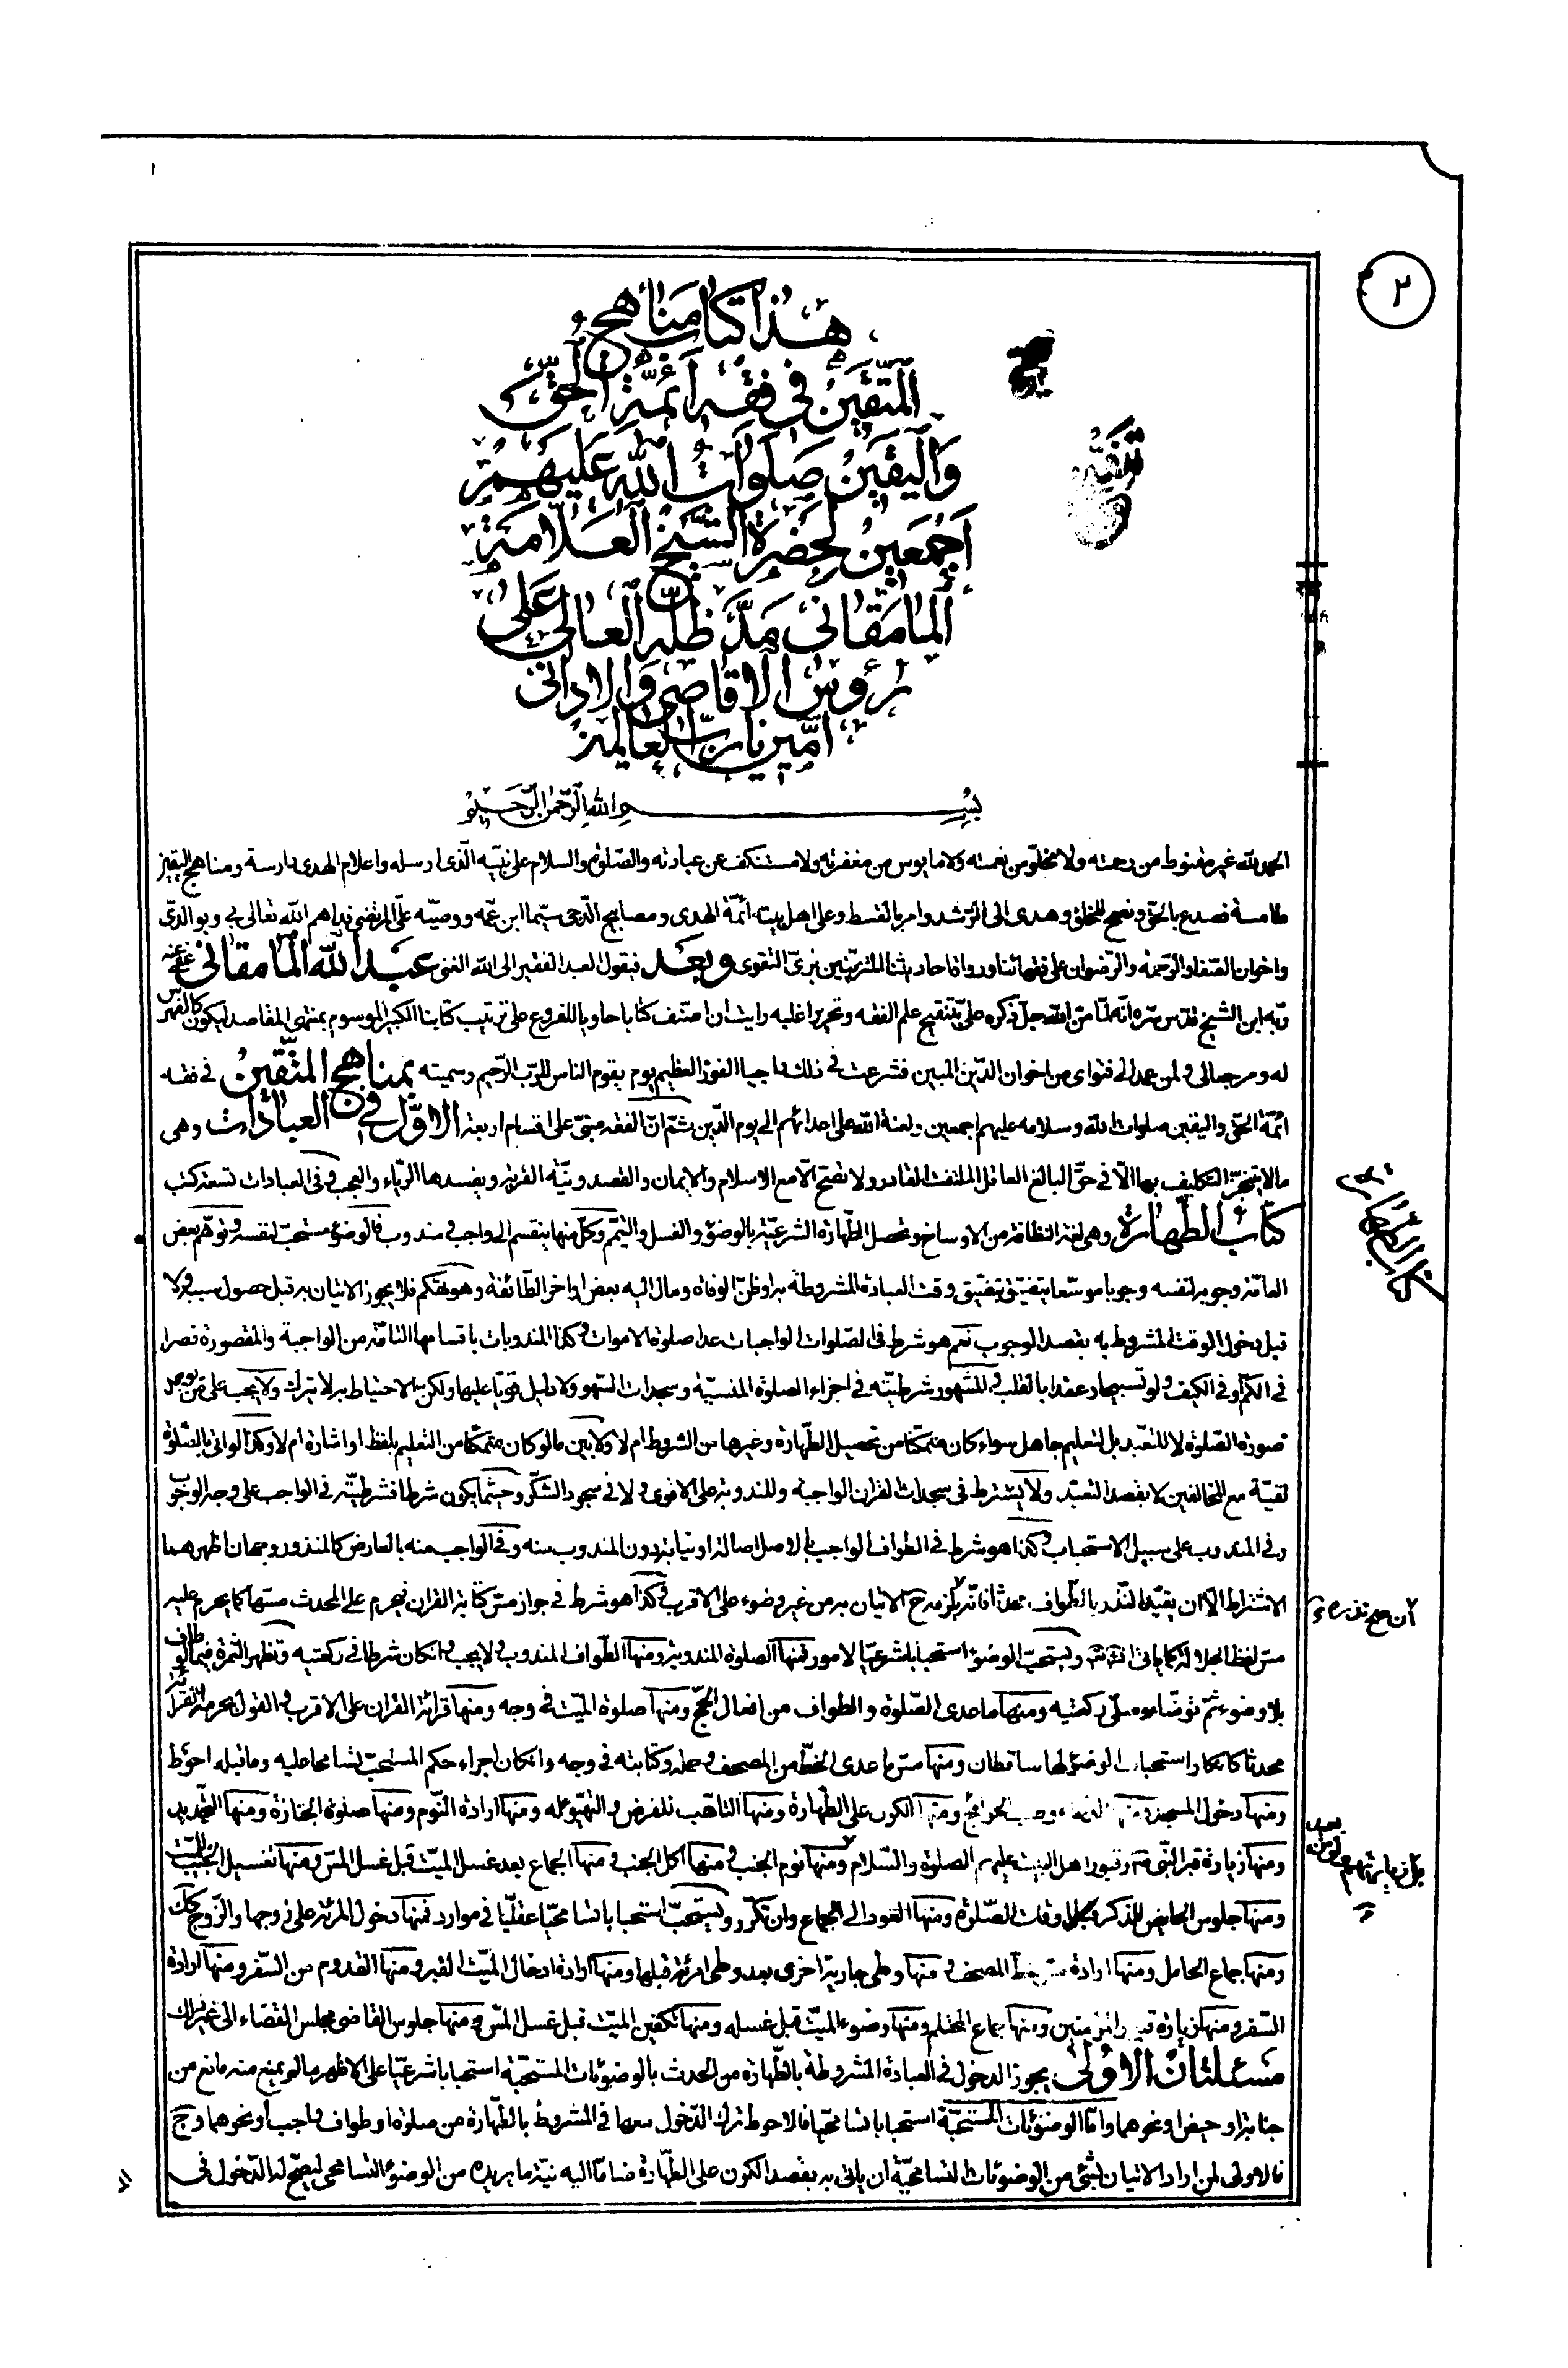 ٢
هذا كتاب مناهج
المتقين في فقه ائمة الحق
واليقين صلوات الله عليهم
اجمعين لحضرة الشيخ العلامة
المامقاني مد ظله العالي على
رؤس الاقاصي والاداني
امين يا رب العالمين
بسم الله الرحمن الرحيم
الحمد لله غير مقنوط من رحمته ولا مخلو من نعمته ولا مايوس من مغفرته ولا مستنكف عن عبادته والصلوة والسلام على نبيه الذى ارسله واعلام الهدى دارسة ومناهج اليقين
طامسة فصدع بالحق ونصح للخلق وهدى الى الرشد وامر بالقسط وعلى اهل بيته ائمة الهدى ومصابيح الدجى سيما ابن عمه ووصيه على المرتضى فداهم الله تعالى بي وبوالدى
واخوان الصفا والرحمة والرضوان على فقهائنا ورواة احاديثنا المتزينين بزى التقوى وبعد فيقول العبد الفقير الى الله الغنى عبد الله المامقاني عفى عنه
ربه ابن الشيخ قدس سره انه لما من الله جل ذكره على بتنقيح علم الفقه وتحرير اغلبه رايت ان اصنف كتابا حاويا للفروع على ترتيب كتابنا الكبير الموسوم بمنتهى المقاصد ليكون كالفهرس
له ومرجعا لى ولمن عمد الى فتواى من اخوان الدين المبين فشرعت في ذلك راجيا الفوز العظيم يوم يقوم الناس للرب الرحيم وسميته بمناهج المتقين في فقه
ائمة الحق واليقين صلوات الله وسلامه عليهم اجمعين ولعنة الله على اعدائهم الى يوم الدين ثم ان الفقه مبنى على اقسام اربعة الاول في العبادات وهى
ما لا يتنجز التكليف بها الا في حق البالغ العاقل الملتفت القادر ولا تصح الا مع الاسلام والايمان والقصد ونية القربة ويفسدها الرياء والعجب وفى العبادات تسعة كتب
كتاب الطهارة وهى لغة النظافة من الاوساخ وتحصل الطهارة الشرعية بالوضوء والغسل والتيمم وكل منها ينقسم الى واجب ومندوب فالوضوء مستحب لنفسه وتوهم بعض
العامة وجوبه لنفسه وجوبا موسعا يتضيق بتضيق وقت العبادة المشروطة به او ظن الوفاة ومال اليه بعض اواخر الطائفة وهو تهكم فلا يجوز الاتيان به قبل حصول سببه ولا
قبل دخول الوقت المشروط به بقصد الوجوب نعم هو شرط في الصلوات الواجبات عدا صلوة الاموات وكذا المندوبات باقسامها التامة من الواجبة والمقصورة قصرا
في الكم او في الكيف ولو تسبيحا وعقدا بالقلب والمشهور شرطيته في اجزاء الصلوة المنسية وسجدات السهو ولا دليل قويا عليها ولكن الاحتياط به لا يترك ولا يجب على من يوجد
صورة الصلوة لا للتعبد بل لتعليم جاهل سواء كان متمكنا من تحصيل الطهارة وغيرها من الشروط ام لا ولا بين ما لو كان متمكنا من التعليم بلفظ او اشارة ام لا وكذا الواتى بالصلوة
تقية مع المخالفين لا بقصد التعبد ولا يشترط في سجدات القران الواجبة والمندوبة على الاقوى ولا في سجود الشكر وحيثما يكون شرطا فشرطيته في الواجب على وجه الوجوب
وفى المندوب على سبيل الاستحباب وكذا هو شرط في الطواف الواجب بالاصل اصالة او نيابة دون المندوب منه وفى الواجب منه بالعارض كالمنذور وجهان اظهرهما
الاشتراط الا ان يقيد النذر بالطواف محدثا فانه يلزمه ح الاتيان به من غير وضوء على الاقرب وكذا هو شرط في جواز مس كتابة القران فيحرم على المحدث مسها كما يحرم عليه
مس لفظ الجلالة كما ياتى انشاء الله ويستحب الوضوء استحبابا شرعيا لامور فمنها الصلوة المندوبة ومنها الطواف المندوب ولا يجب وان كان شرطا في ركعتيه وتظهر الثمرة فيما لو طاف
بلا وضوء ثم توضاء وصلى ركعتيه ومنها ما عدى الصلوة والطواف من افعال الحج ومنها صلوة الميت في وجه ومنها قرائة القران على الاقرب والقول بحرمة القرائة
محدثا كانكار استحباب الوضوء لها ساقطان ومنها مس ما عدى الخط من المصحف وحمله وكتابته في وجه وان كان اجراء حكم المستحب تسامحا عليه وما قبله احوط
ومنها دخول المسجد ومنها الدعاء وطلب الحوائج ومنها الكون على الطهارة ومنها التاهب للفرض والتهيؤ له ومنها ارادة النوم ومنها صلوة الجنازة ومنها التجديد
ومنها زيارة قبر النبى ص وقبور اهل البيت عليهم الصلوة والسلام ومنها نوم الجنب ومنها اكل الجنب ومنها الجماع بعد غسل الميت قبل غسل المس ومنها تغسيل الجنب الميت
ومنها جلوس الحائض للذكر اوقات الصلوة ومنها العود الى الجماع وان تكرر ويستحب استحبابا تسامحيا عقليا في موارد فمنها دخول المرئة على زوجها والزوج كك
ومنها جماع الحامل ومنها ارادة المصحف ومنها وطى جارية اخرى بعد وطى امرئة قبلها ومنها ارادة ادخال الميت القبر ومنها القدوم من السفر ومنها ارادة
السفر ومنها زيارة قبور المؤمنين ومنها جماع المحتلم ومنها وضوء الميت قبل غسله ومنها تكفين الميت قبل غسل المس ومنها جلوس القاضى مجلس القضاء الى غير ذلك
مسئلتان الاولى يجوز الدخول في العبادة المشروطة بالطهارة من الحدث بالوضوئات المستحبة استحبابا شرعيا على الاظهر ما لم يمنع منه مانع من
جنابة او حيض او نحوهما واما الوضوئات المستحبة استحبابا تسامحيا فالاحوط ترك الدخول معها في المشروط بالطهارة من صلوة او طواف واجب او نحوهما وح
فالاولى لمن اراد الاتيان بشئ من الوضوئات التسامحية ان ياتى به بقصد الكون على الطهارة ضاما اليه نية ما يريده من الوضوء التسامحى ليصح له الدخول في
كتاب الطهارة
ان صح نذره